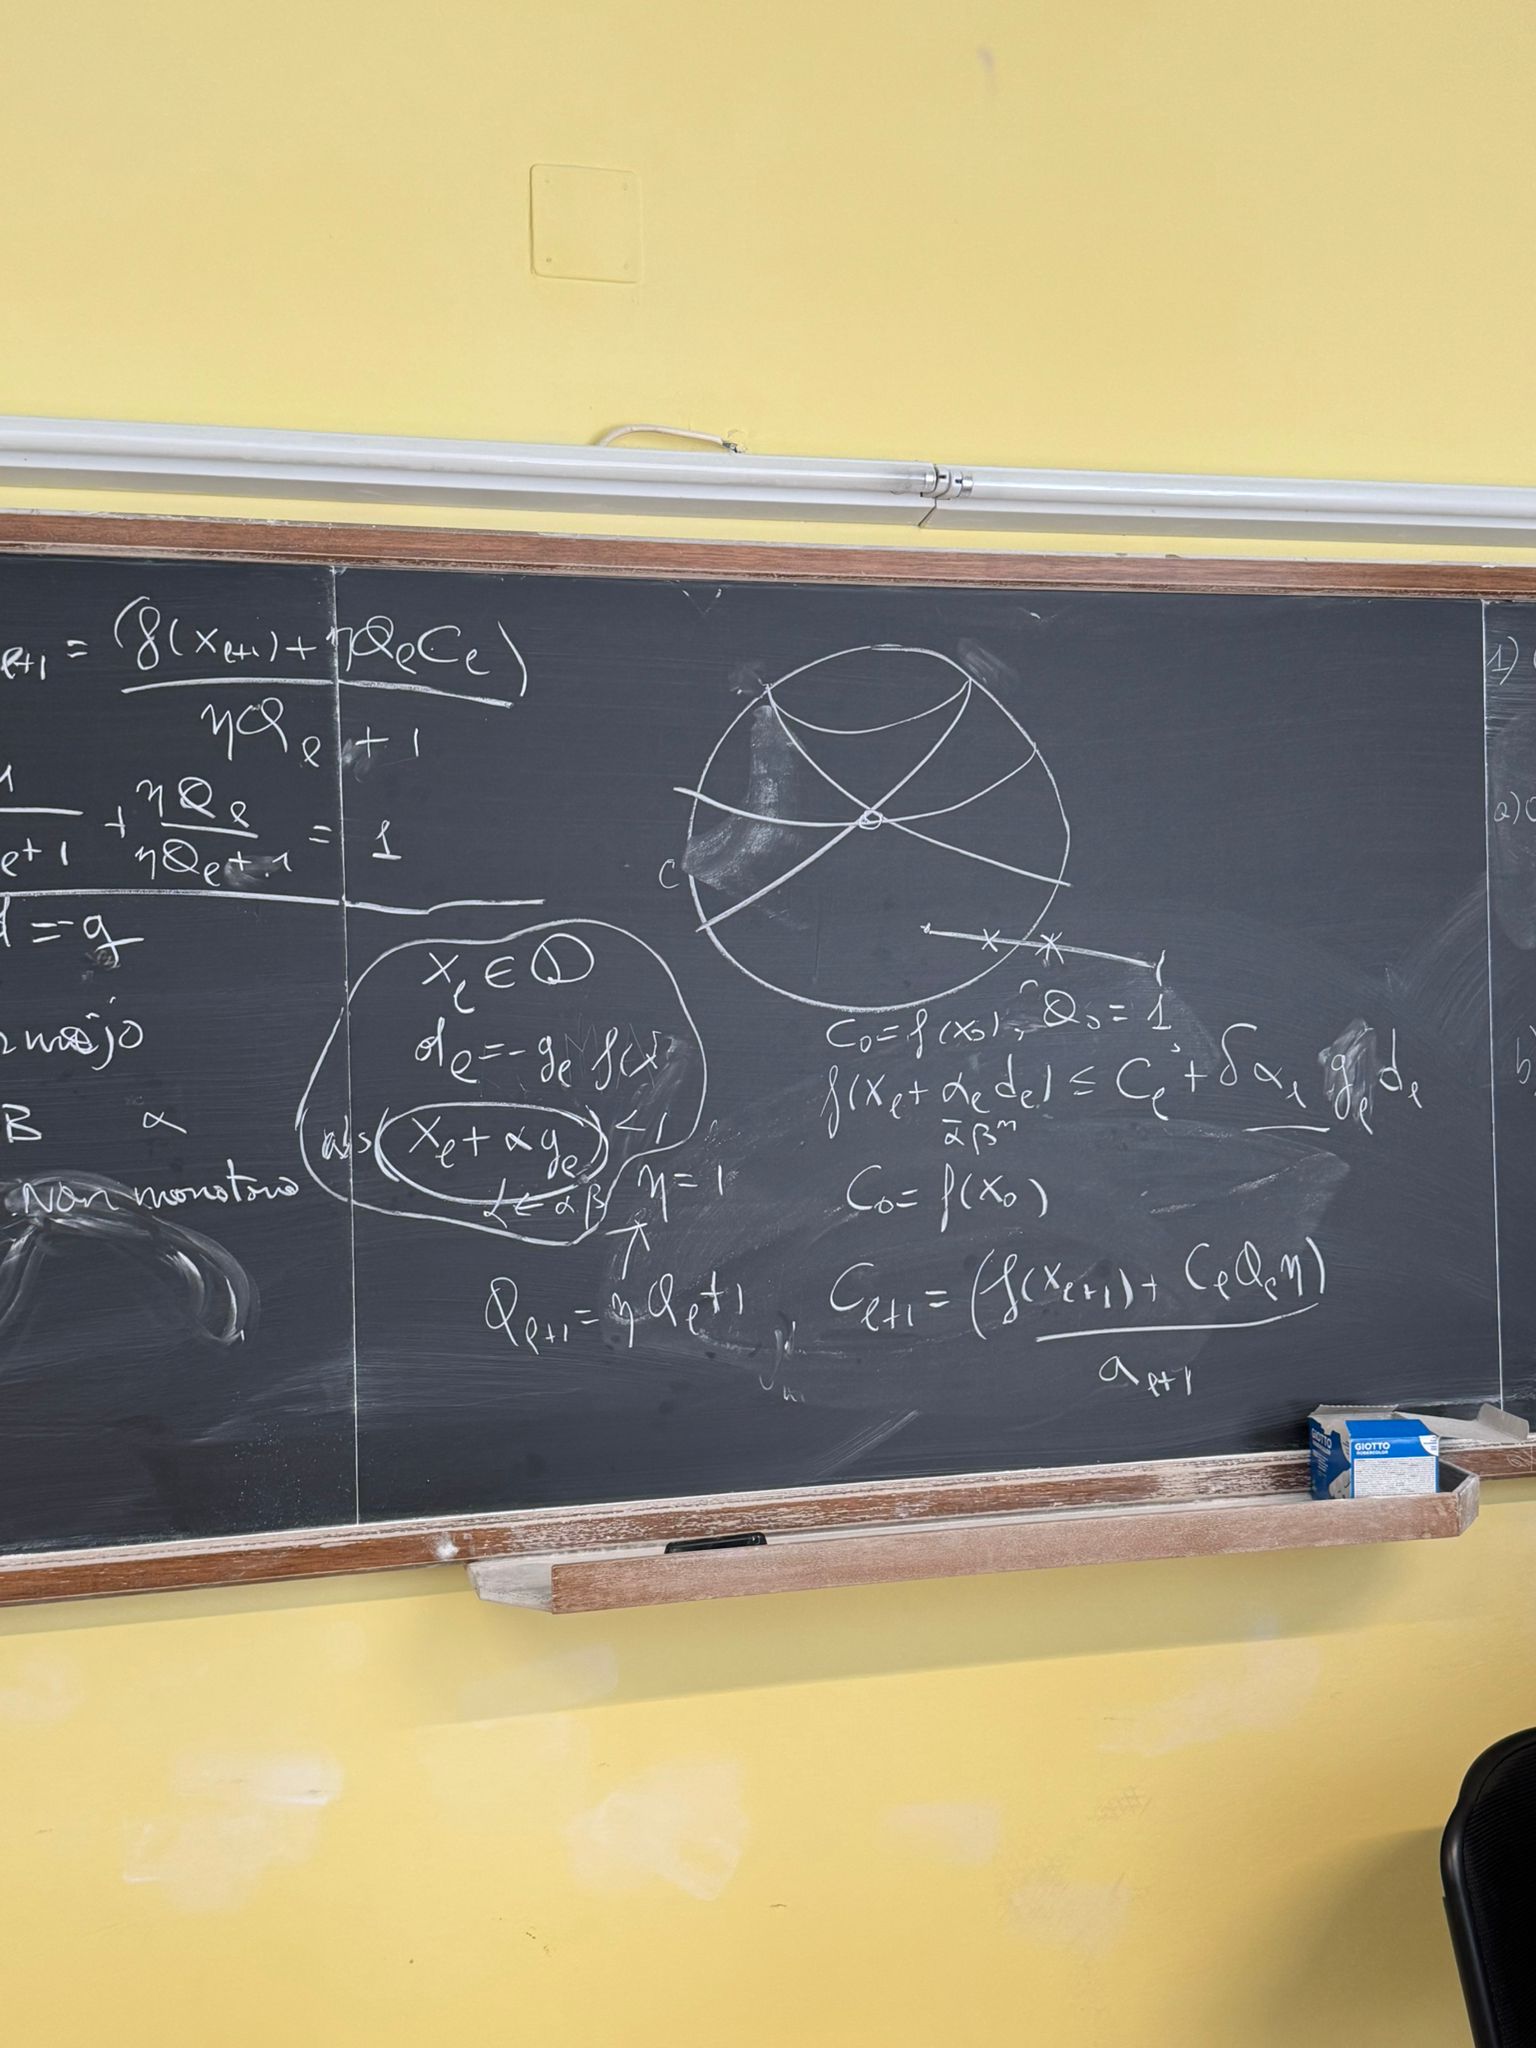 ℓ+1 = (f(xℓ+1) + ηQℓCℓ)
ηQℓ + 1
ℓ+1 + ηQℓ / ηQℓ+1 = 1
d = -g
B α
Non monotono
xℓ ∈ D
dℓ = -gℓ f(x
abs(xℓ + αgℓ) < 1
α ← αβ
η = 1
Qℓ+1 = ηQℓ+1
C
C₀ = f(x₀), Q₀ = 1
f(xℓ + αℓdℓ) ≤ Cℓ + δαℓ gℓdℓ
ᾱβᵐ
C₀ = f(x₀)
Cℓ+1 = (f(xℓ+1) + CℓQℓη)
aℓ+1
1)
a)
b
GIOTTO
GIOTTO
ROBERCOLOR